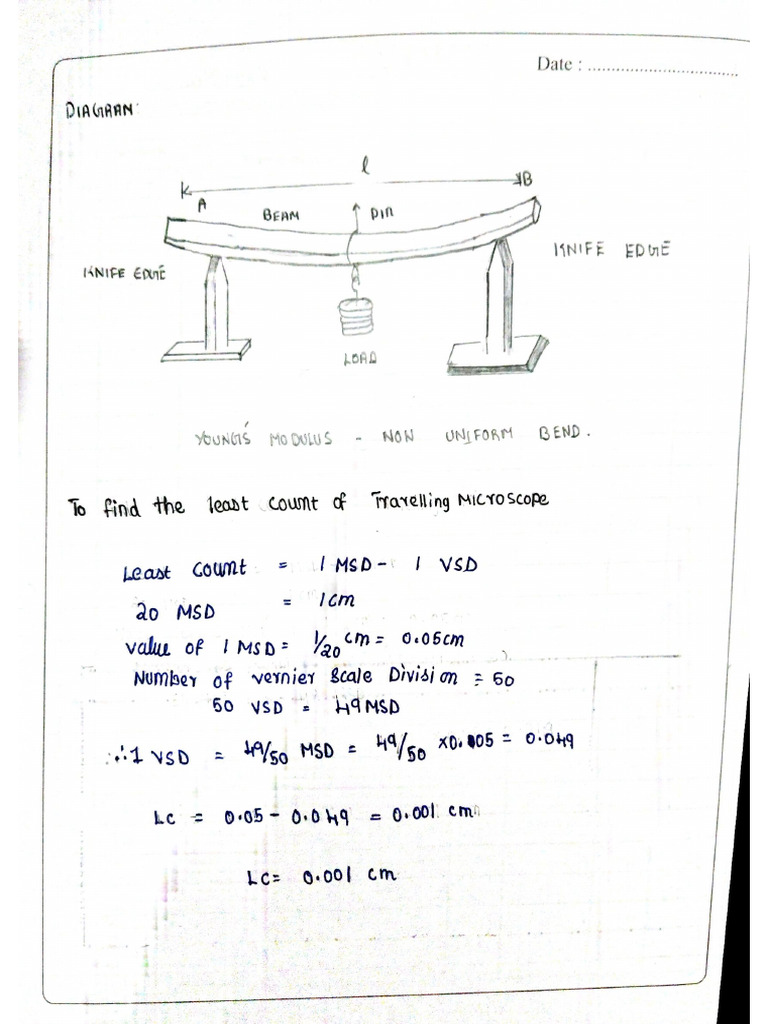 Date : ................................
DIAGRAM:
l
A
B
BEAM
PIN
KNIFE EDGE
KNIFE EDGE
LOAD
YOUNG'S MODULUS - NON UNIFORM BEND.
To find the least count of Travelling MICROSCOPE
Least Count = 1 MSD - 1 VSD
20 MSD = 1cm
Value of 1 MSD = 1/20 cm = 0.05cm
Number of vernier Scale Division = 50
50 VSD = 49 MSD
∴ 1 VSD = 49/50 MSD = 49/50 x0.005 = 0.049
LC = 0.05 - 0.049 = 0.001 cm
LC = 0.001 cm